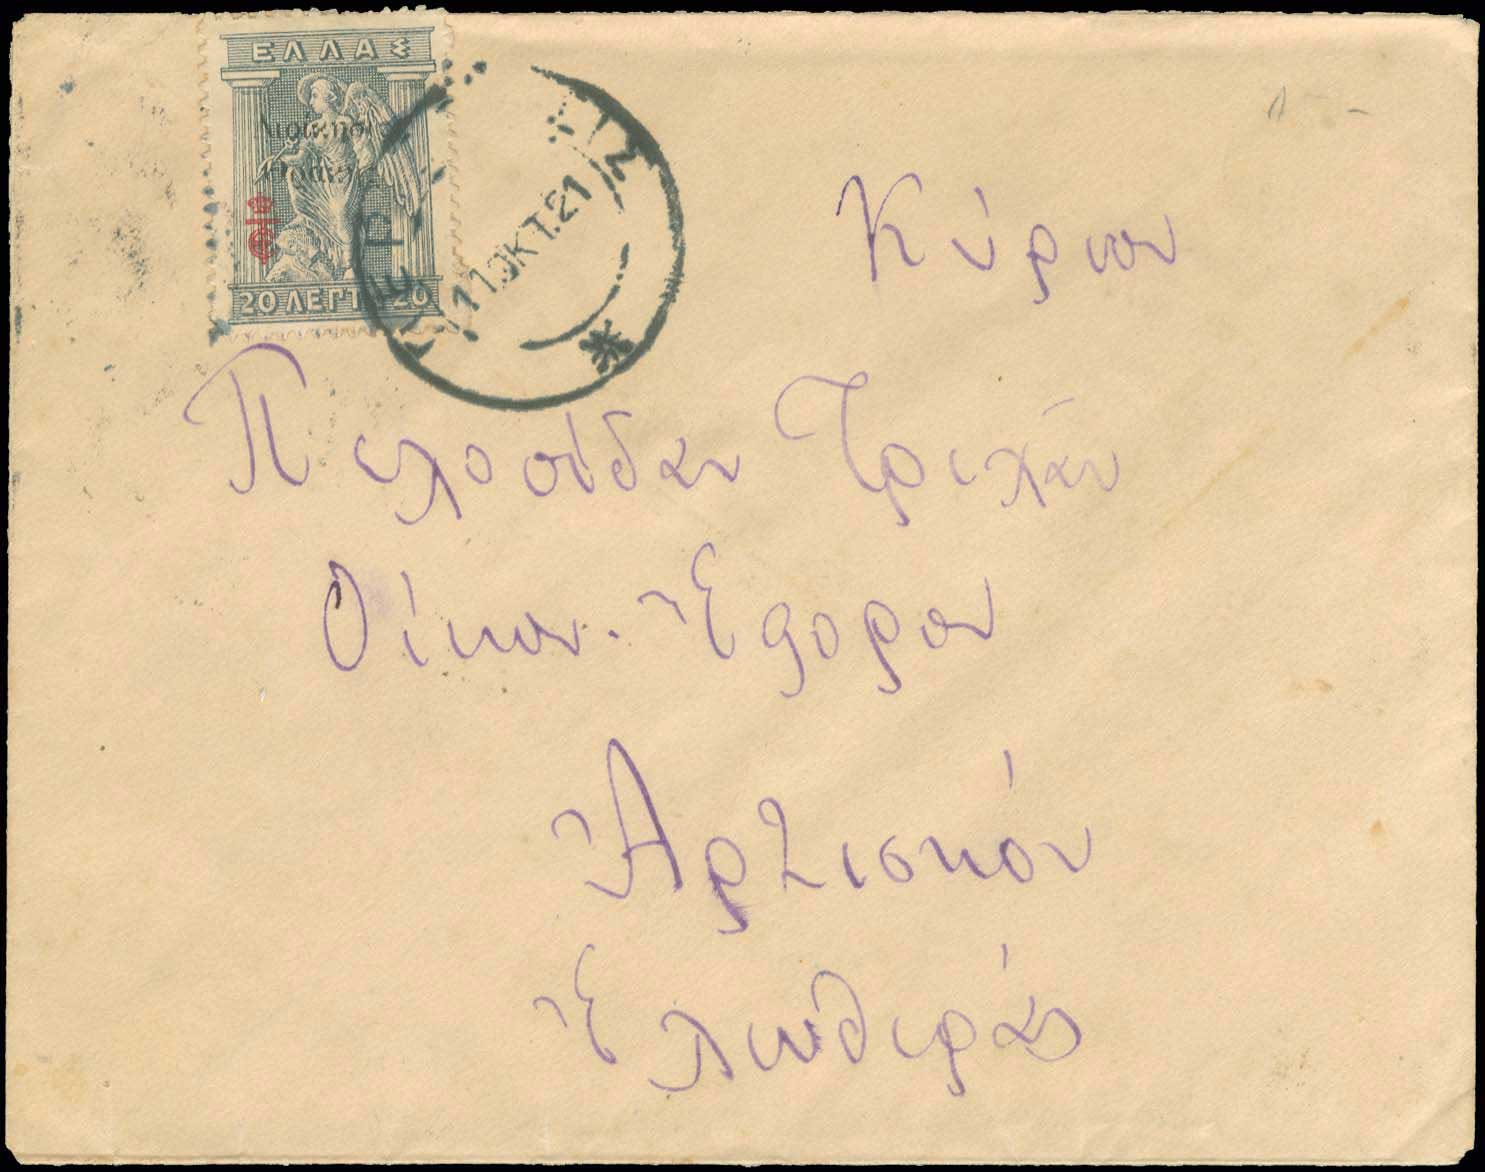 ΕΛΛΑΣ
Διοίκησις
Θράκης
20 ΛΕΠΤ 20
11 ΟΚΤ. 21
Κύριον
Πελοπίδαν Τριχάν
Οἰκον. Ἔφορον
Ἀρτισκόν
Ἐλευθεράς